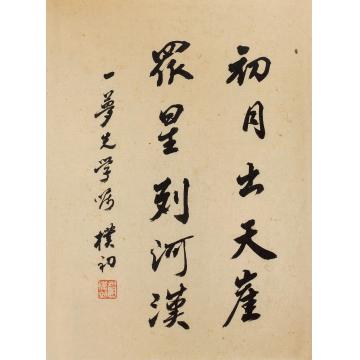 初月出天崖
眾星列河漢
一夢先学嘱 樸初